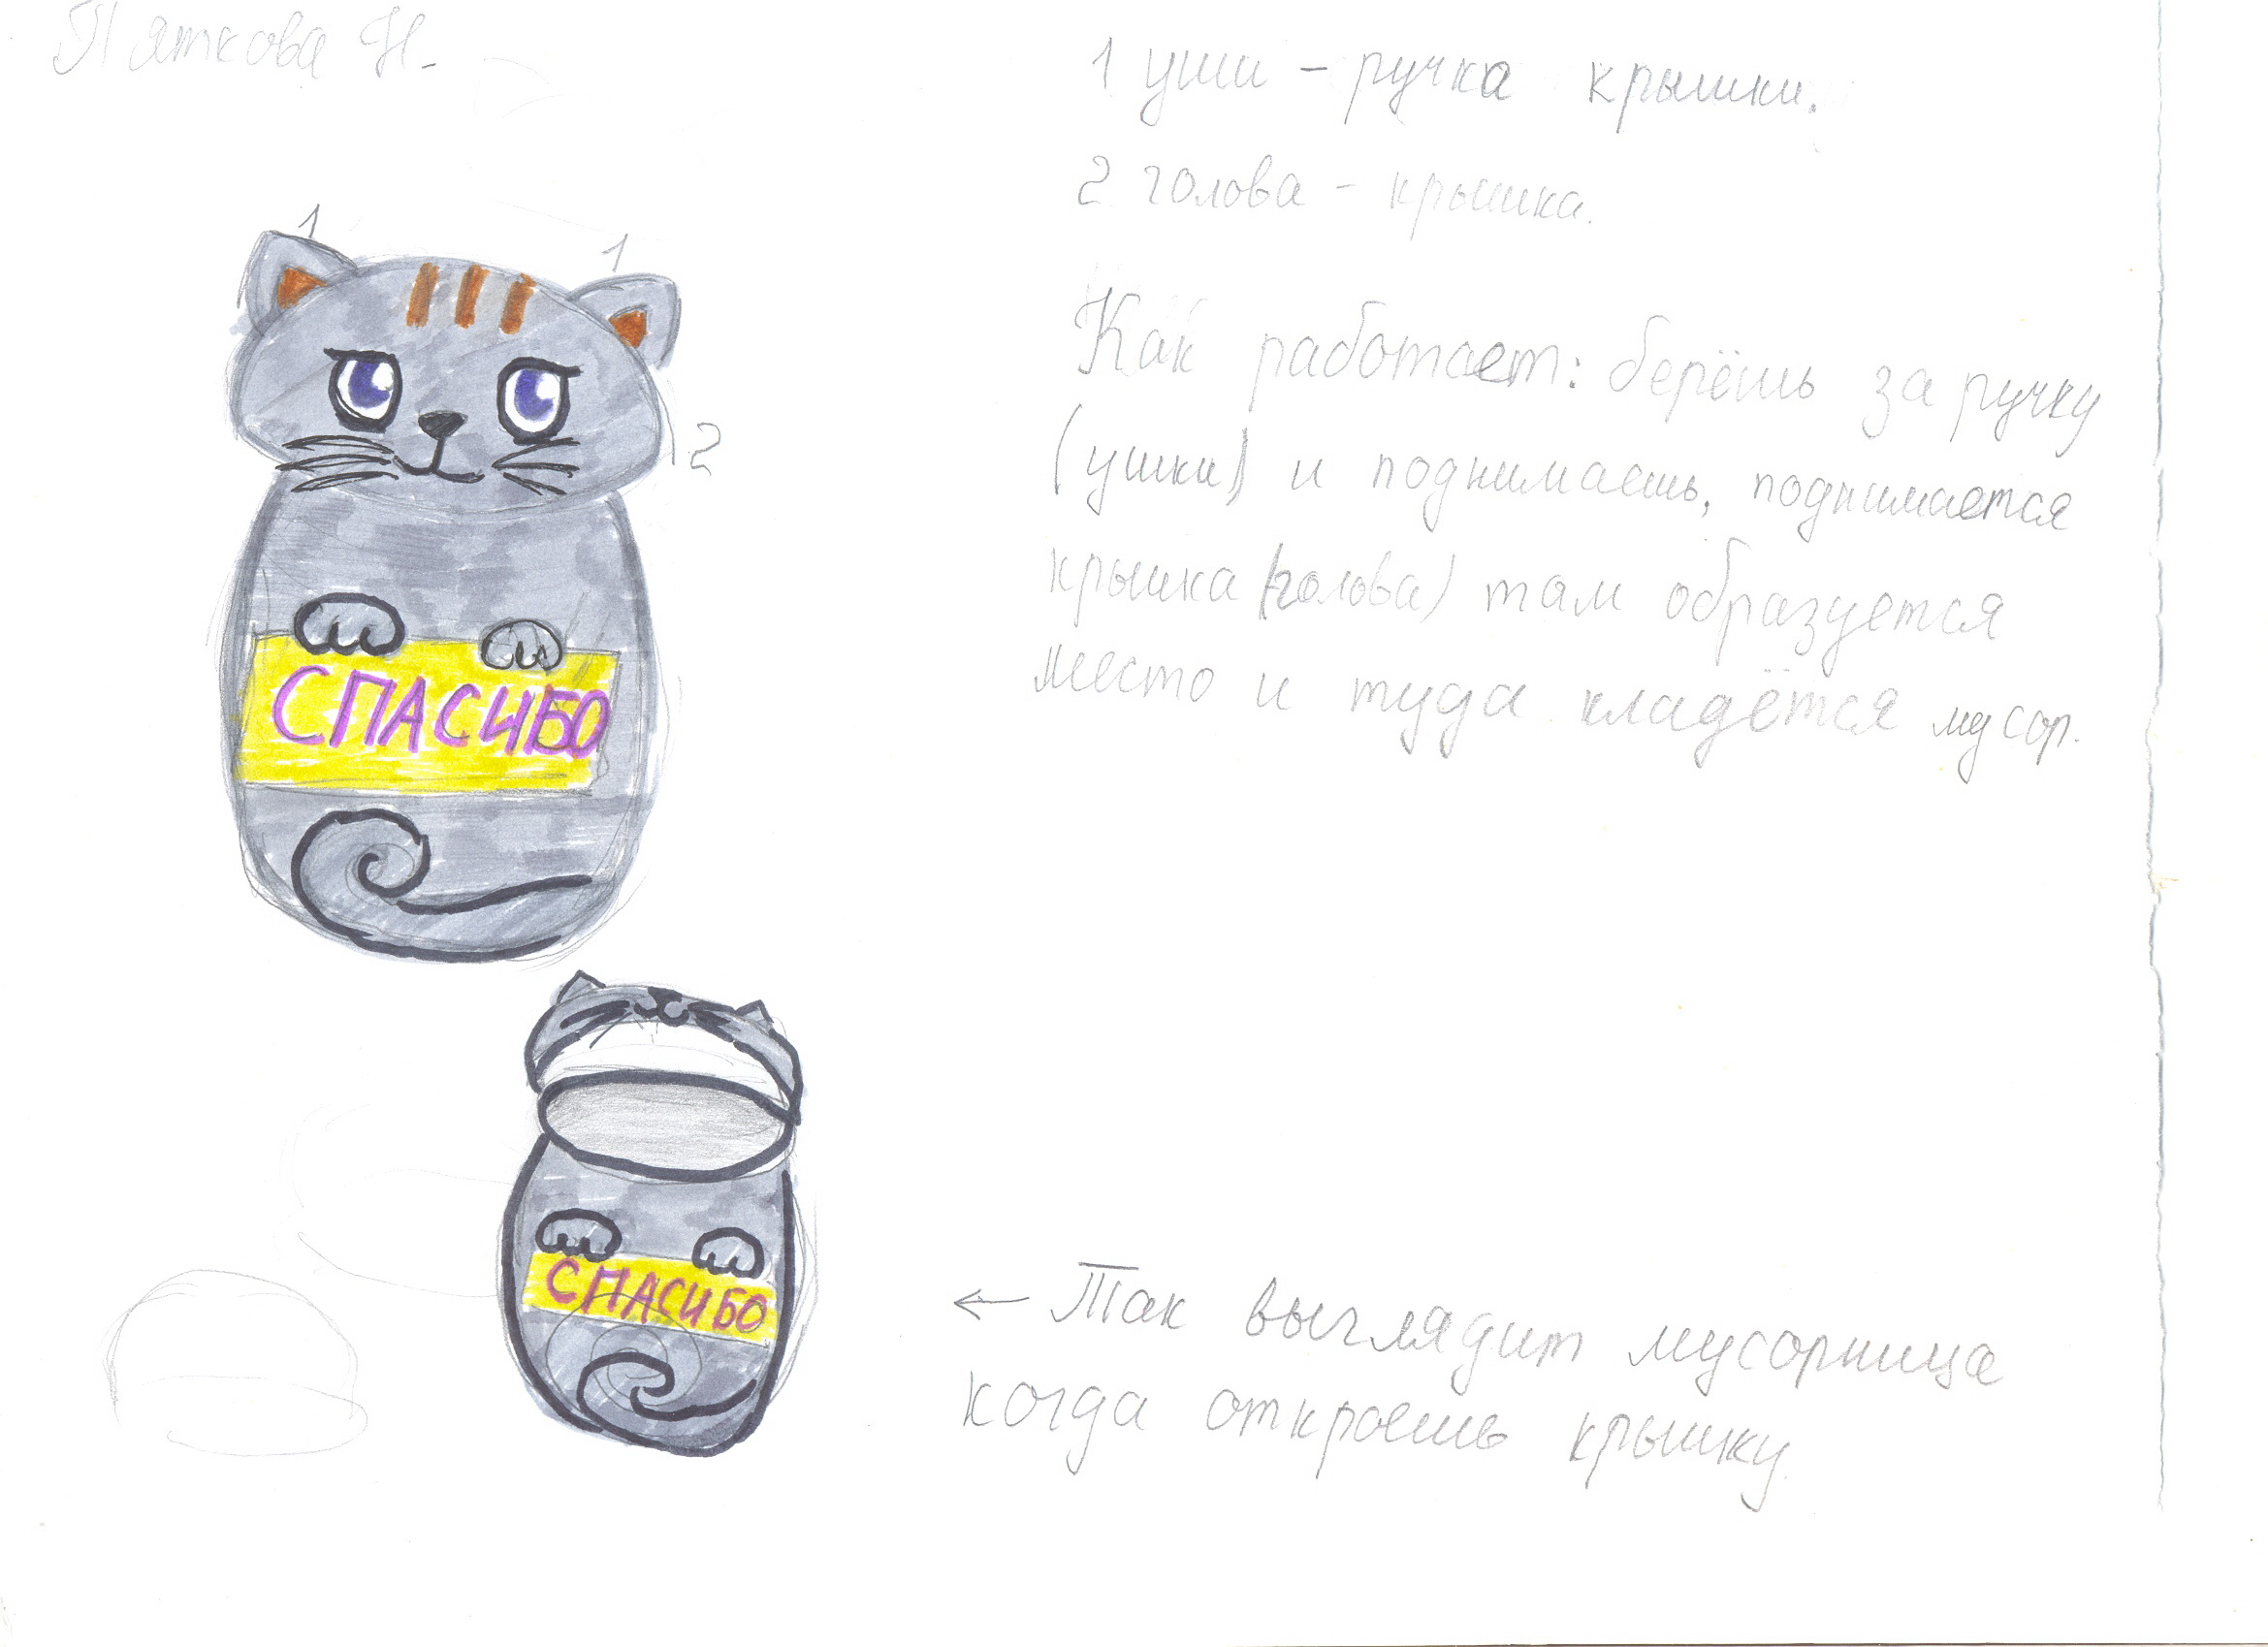 Пяткова Н.
1 уши - ручка крышки.
2 голова - крышка.
1
1
2
Как работает: берёшь за ручку
(ушки) и поднимаешь, поднимается
крышка (голова) там образуется
место и туда кладётся мусор.
СПАСИБО
СПАСИБО
← Так выглядит мусорница
когда откроешь крышку.